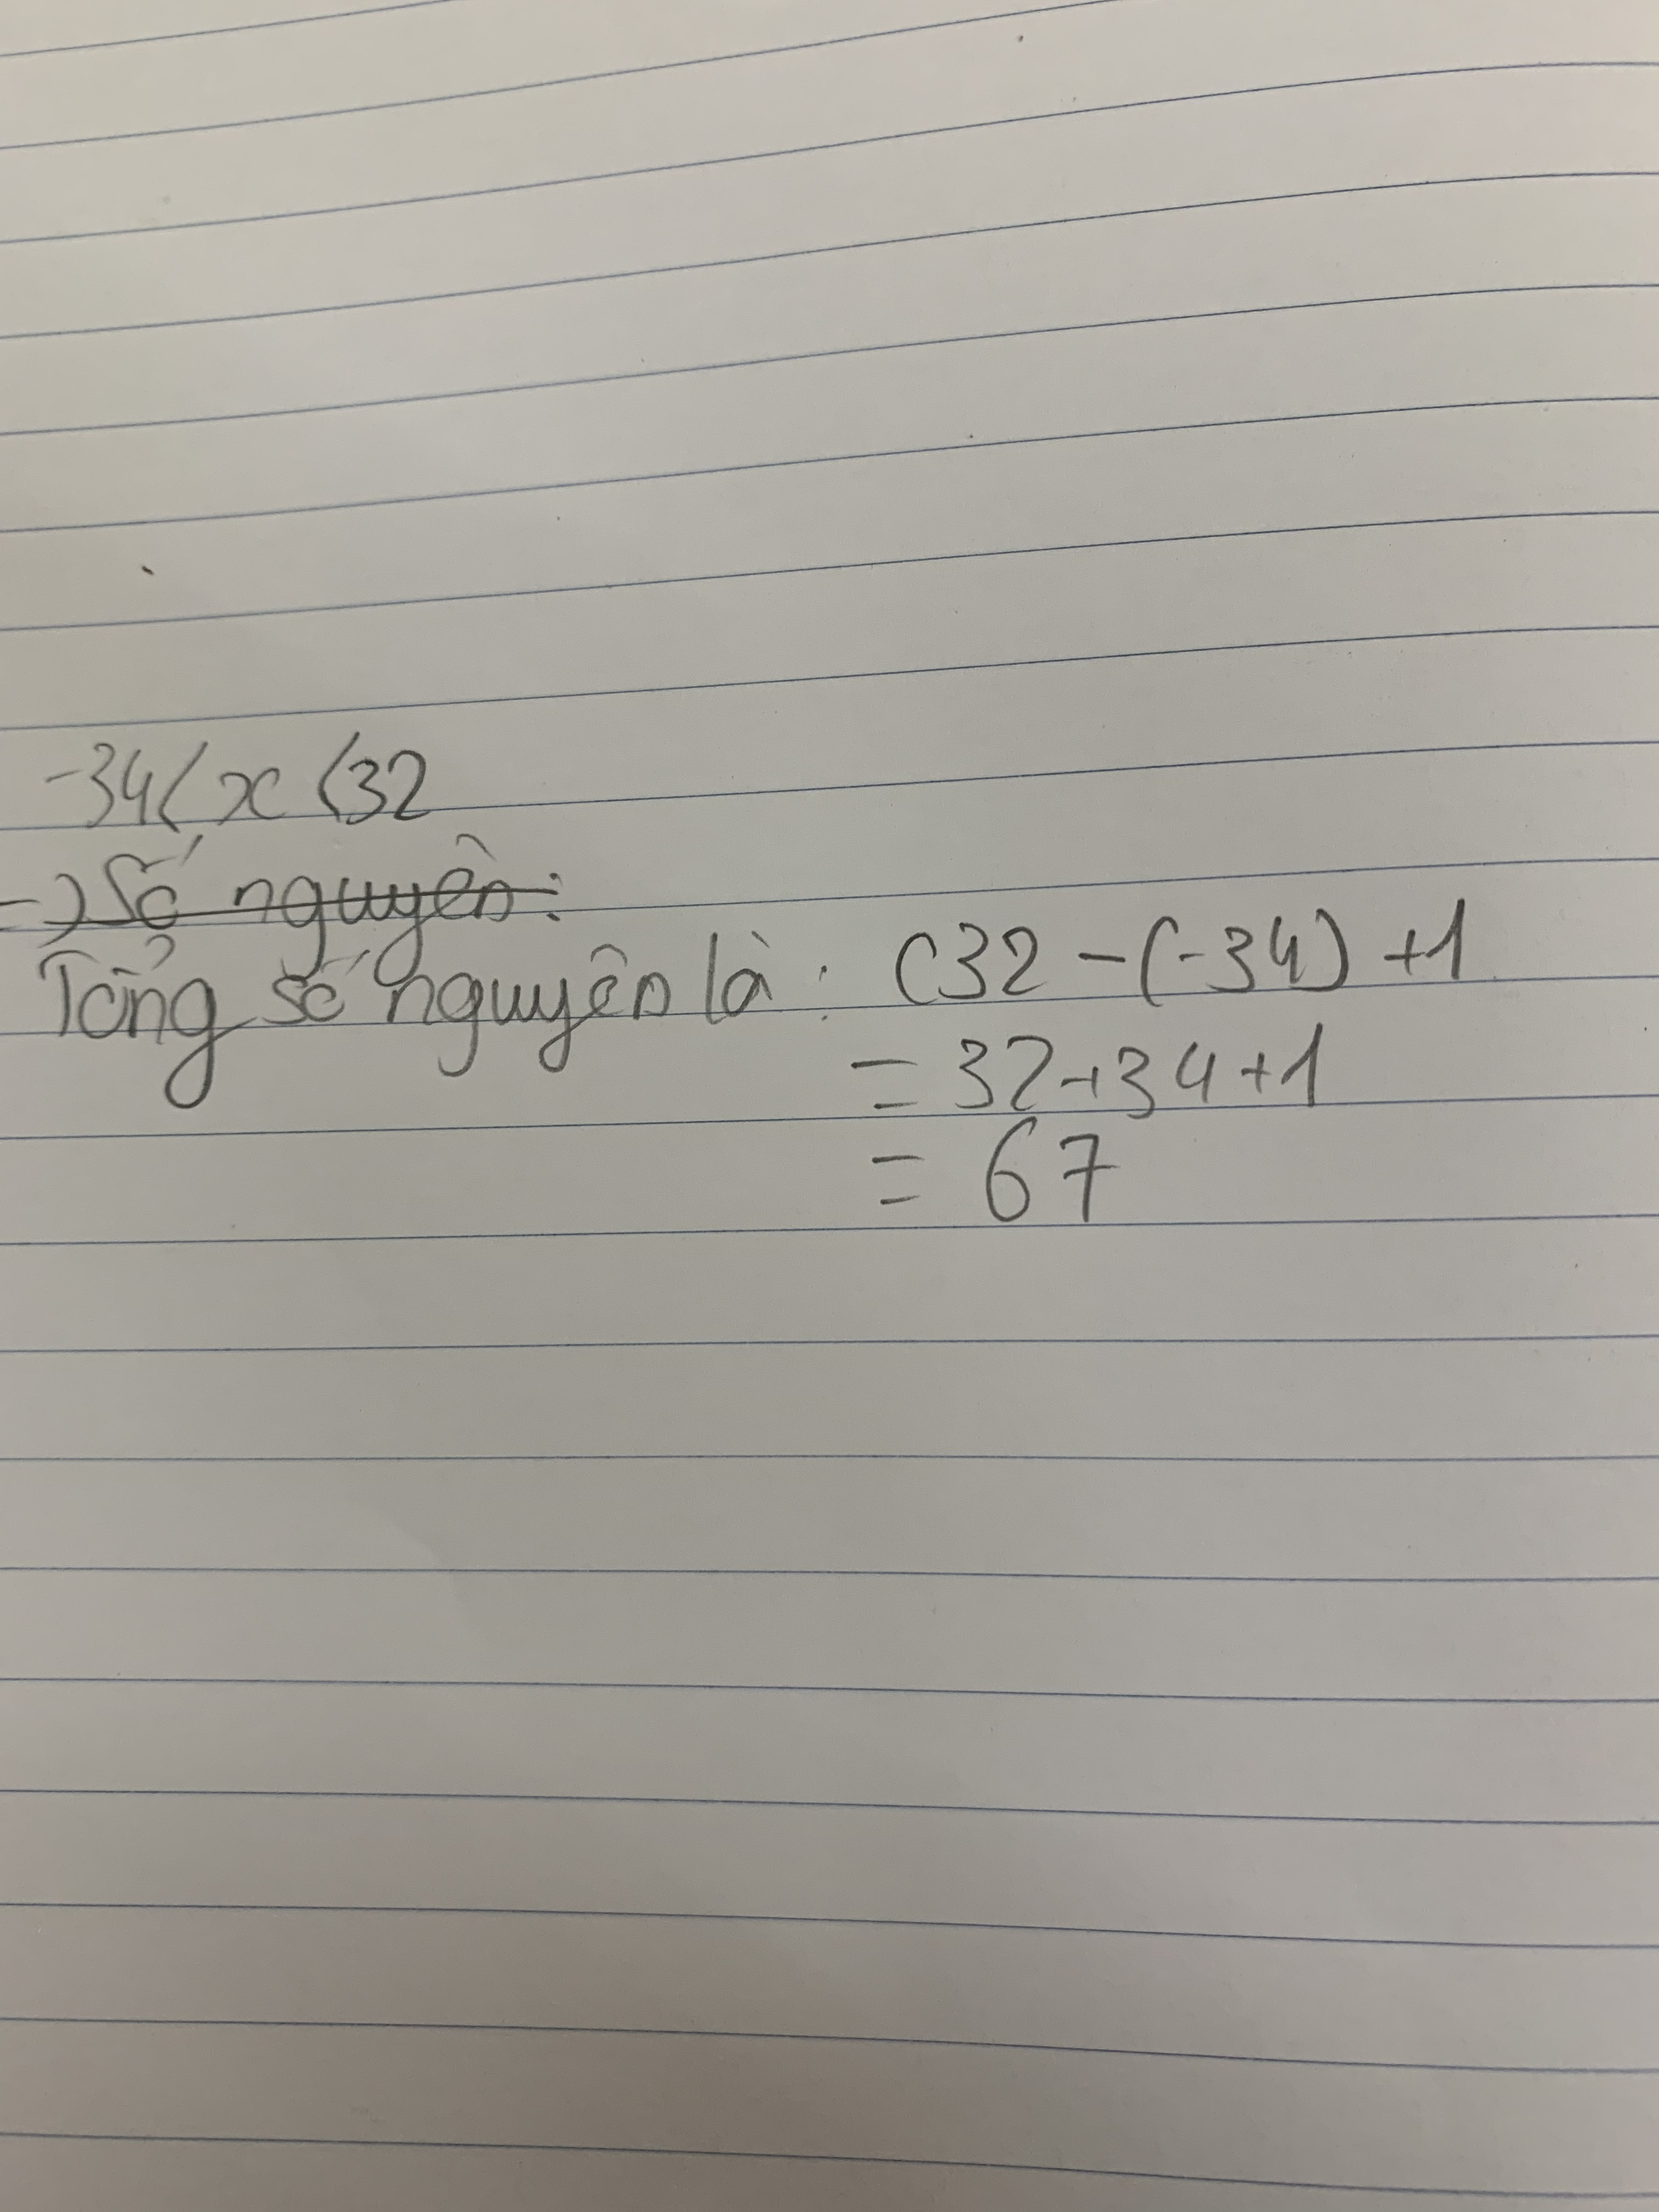 -34< x <32
=) Số nguyên:
Tổng số nguyên là: (32 - (-34) +1
= 32+34+1
= 67